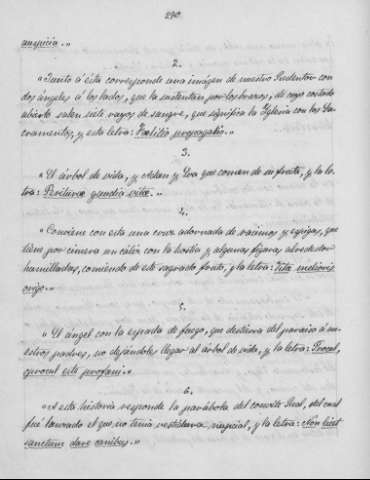 290
auspicia.."
2.
"Junto á ésta corresponde una imágen de nuestro Redentor con
dos ángeles á los lados, que la sustentan por los brazos, de cuyo costado
abierto salen siete rayos de sangre, que significa la Yglesia con los Sa-
cramentos, y esta letra: proprogatio.."
3.
"El árbol de vida, y Adan y Eva que comen de su fruta, y la le-
tra: Periturae gaudia vitae.."
4.
"Conviene con esta una cruz adornada de racimos y espigas, que
tiene por cimera un cáliz con la hostia y algunas figuras alrededor
humilladas, comiendo de este sagrado fruto, y la letra: Vitae melioris
origo.."
5.
"El ángel con la espada de fuego, que destierra del paraiso á nu-
estros padres, no dejándoles llegar al árbol de vida, y la letra: Procul,
oprocul este profani.."
6.
"A esta historia responde la parábola del convite Real, del cual
fué lanzado el que no tenia vestidura nupcial, y la letra: Non licet
sanctum dare canibus.."